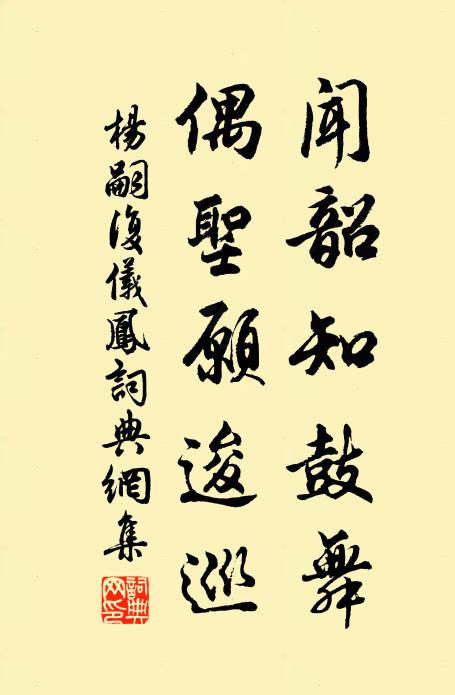 闻韶知鼓舞
偶聖願逡巡
楊嗣復儀鳳詞典網集
詞典网印